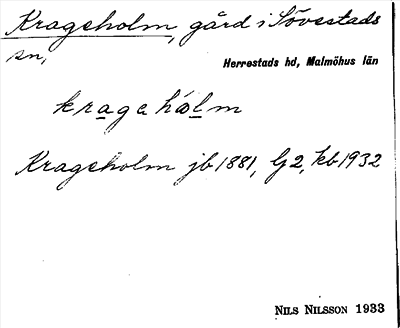 Krageholm, gård i Sövestads
sn,
Herrestads hd, Malmöhus län
kragahålm
Krageholm jb 1881, G2, kb 1932
NILS NILSSON 1933